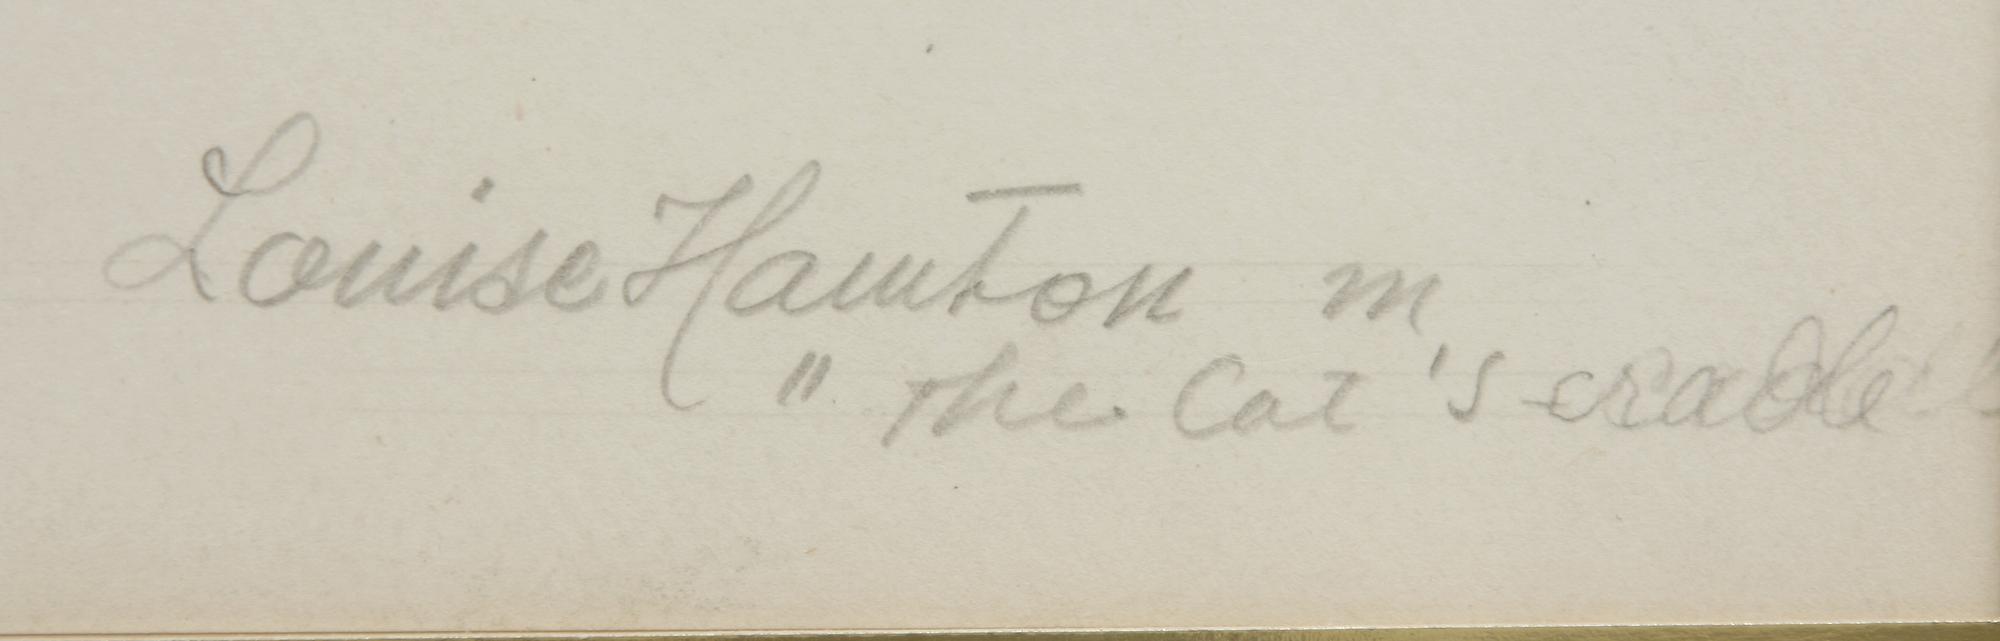 Louise Hamton in
" The Cat's cradle "